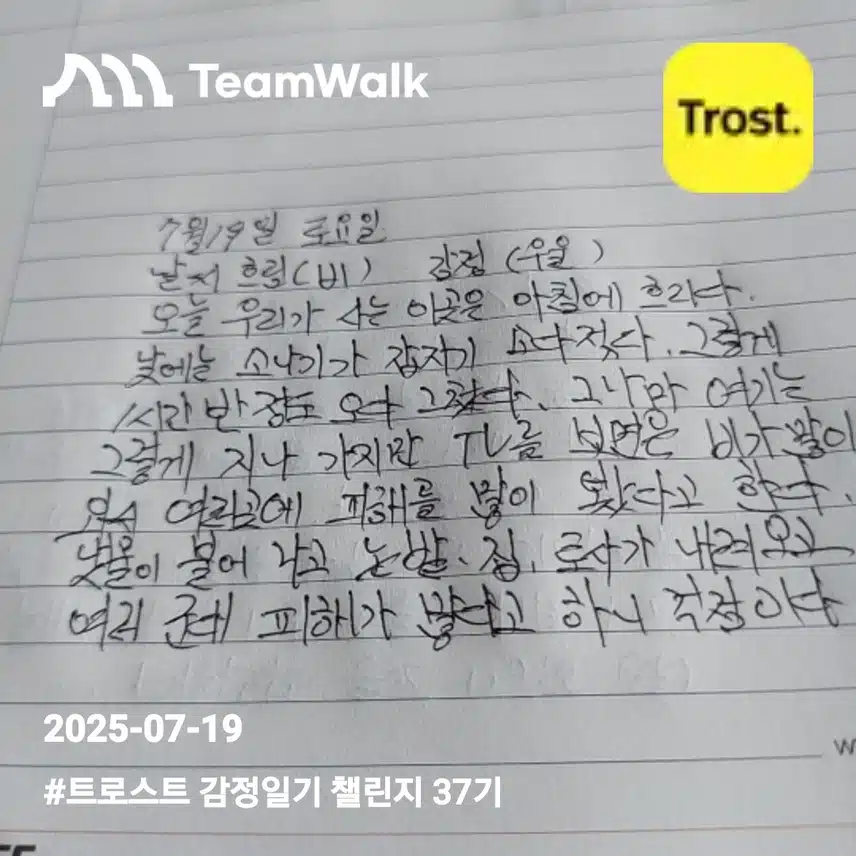 TeamWalk
Trost.
7월19일 토요일
날씨 흐림(비) 감정 (우울)
오늘 우리가 사는 이곳은 아침에 흐리다.
낮에는 소나기가 갑자기 쏘다젓다. 그렇게
1시간 반 정도 오다 그쳤다. 그나마 여기는
그렇게 지나 가지만 TV를 보면은 비가 많이
와서 여러곳에 피해를 많이 봤다고 한다.
냇물이 불어 나고 논밭. 집. 토사가 내려오고
여러 군데 피해가 많다고 하니 걱정이다
2025-07-19
#트로스트 감정일기 챌린지 37기